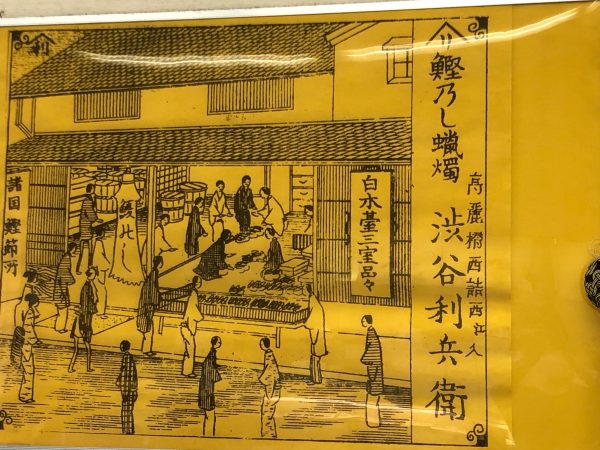 鰹乃し蝋燭 渋谷利兵衛
高麗橋西詰西江入
白木臺三宝品々
諸国鰹節所
利